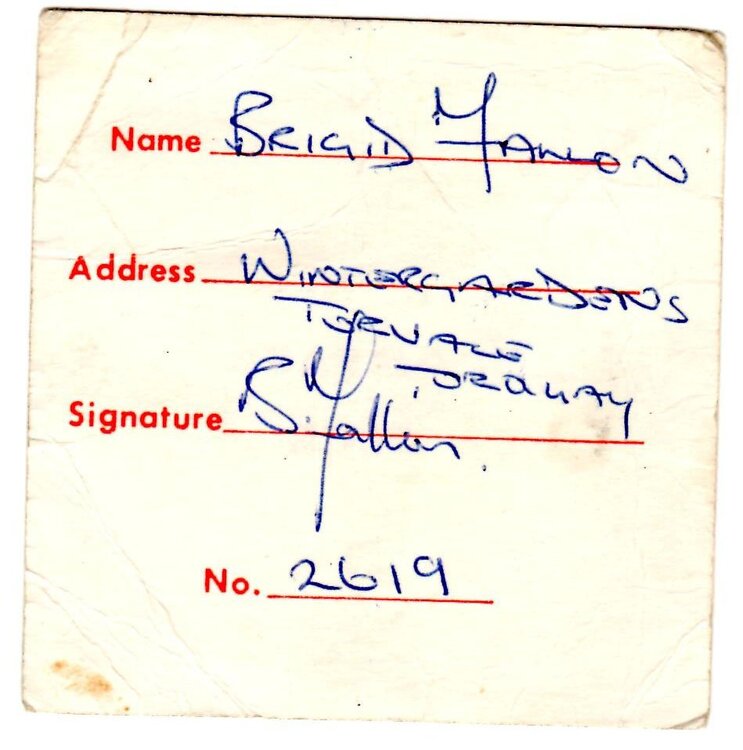 Name BRIGID MALLON
Address WINTERGARDENS
TORVALE
TORQUAY
Signature B. Mallon.
No. 2619